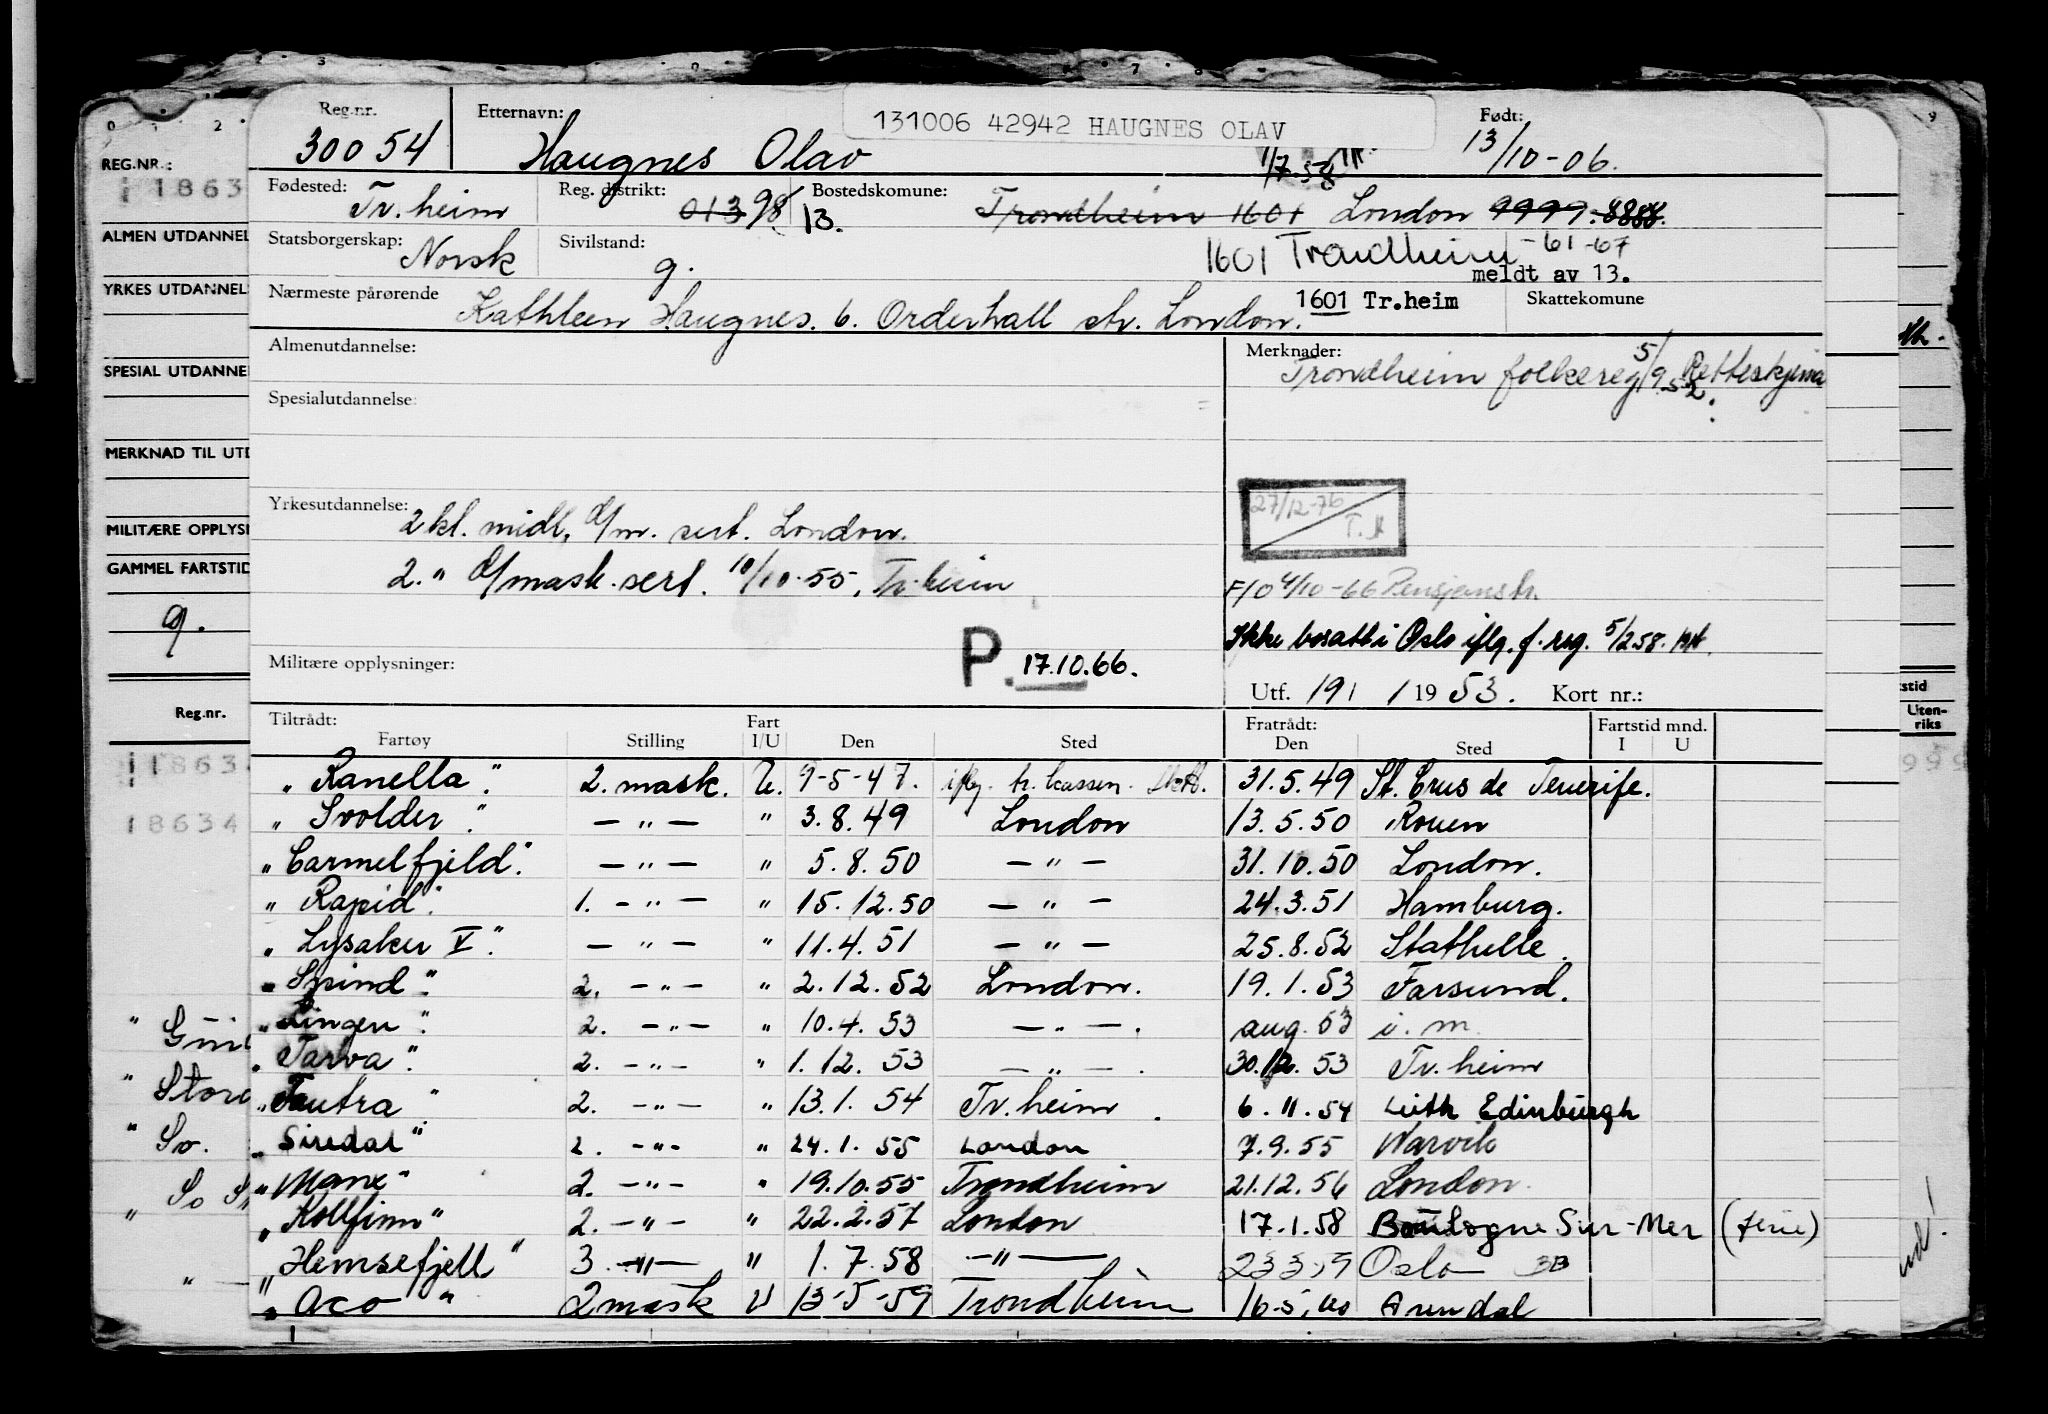 Reg.nr. Etternavn: 131006 42942 HAUGNES OLAV Født:
30054 Haugnes Olav 1/7.58 13/10-06.
Fødested: Tr.heim Reg. distrikt: 013 98 Bostedskomune: 13. Trondheim 1601 London 9999. 8888.
Statsborgerskap: Norsk Sivilstand: g. 1601 Trondheim -61-67
meldt av 13.
Nærmeste pårørende Kathleen Haugnes. 6. Orderhall str. London. 1601 Tr.heim Skattekomune
Almenutdannelse: Merknader:
Trondheim folkereg 5/9-52 Retteskjema
Spesialutdannelse:
Yrkesutdannelse: 27/12-76
2 kl. midl. d/m. sert. London. T.
2. " d/mask. sert. 10/10-55, Tr.heim
F10 4/10-66 Pensjonstr.
Ikke bosatt i Oslo iflg. f. reg. 5/2 58.
Militære opplysninger: P. 17.10.66.
Utf. 19/ 1 19 53. Kort nr.:
Tiltrådt: Fart Fratrådt: Fartstid mnd.
Fartøy Stilling I/U Den Sted Den Sted I U
"Ranella". 2. mask. U. 9-5-47. iflg. tr. kassen. 31.5.49 St. Crus de Tenerife.
"Svolder". — " — " 3.8.49 London 13.5.50 Rouen
"Carmelfjeld". — " — " 5.8.50 — " — 31.10.50 London.
"Rapid". 1. — " — " 15.12.50 — " — 24.3.51 Hamburg.
"Lysaker V". — " — " 11.4.51 — " — 25.8.52 Stathelle.
"Spind". 2. — " — " 2.12.52 London. 19.1.53 Farsund.
"Lingen". 2. — " — " 10.4.53 — " —. aug. 53 i. m.
"Tarva". 2. — " — " 1.12.53 — " —. 30.12.53 Tr.heim
"Tautra" 2. — " — " 13.1.54 Tr.heim. 6.11.54 Leith Edinburgh
"Siredal" 2. — " — " 24.1.55 London 7.9.55 Narvik
"Manx" 2. — " — " 19.10.55 Trondheim 21.12.56 London.
"Kollfinn" 2. — " — " 22.2.57 London 17.1.58 Boulogne Sur-Mer (ferie)
"Hemsefjell" 3. — " — " 1.7.58 — " — 23 3 59 Oslo
"Aco" 2 mask U 13-5-59 Trondheim 16-5-60 Arendal
REG.NR.:
11863
ALMEN UTDANNEL
YRKES UTDANNEL
SPESIAL UTDANNE
MERKNAD TIL UTD
MILITÆRE OPPLYSN
GAMMEL FARTSTID
g.
Reg.nr.
11863
18634
" Stor
" Sv.
tstid
Uten-
riks